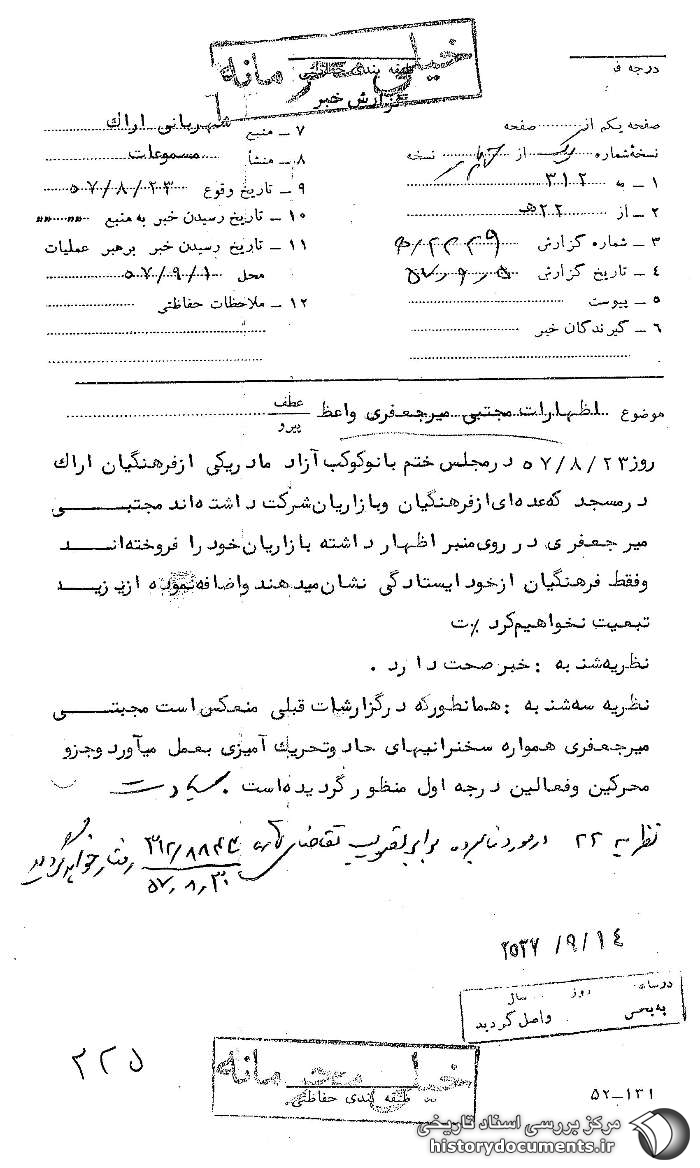 خیلی محرمانه
طبقه بندی حفاظتی
گزارش خبر
درجه ف
صفحه یکم از صفحه
نسخهٔ شماره یک از نسخه
۱ ــ به ۳۱۲
۲ ــ از ۲۲هـ
۳ ــ شماره گزارش
۴ ــ تاریخ گزارش ۵۷٫۹٫۵
۵ ــ پیوست
۶ ــ گیرندگان خبر
۷ ــ منبع شهربانی اراك
۸ ــ منشأ مسموعات
۹ ــ تاریخ وقوع ۵۷/۸/۲۳
۱۰ ــ تاریخ رسیدن خبر به منبع " "
۱۱ ــ تاریخ رسیدن خبر برهبر عملیات
محل ۵۷/۹/۱
۱۲ ــ ملاحظات حفاظتی
موضوع اظهارات مجتبی میرجعفری واعظ عطف
پیرو
روز ۵۷/۸/۲۳ درمجلس ختم بانوکوکب آزاد مادریکی ازفرهنگیان اراك
درمسجد که‌عده‌ای ازفرهنگیان وبازاریان شرکت داشته‌اند مجتبی
میرجعفری در روی منبر اظهار داشته بازاریان خود را فروخته‌اند
وفقط فرهنگیان ازخود ایستادگی نشان میدهند واضافه نموده ازیزید
تبعیت نخواهیم کرد ٪ ت
نظریه شنبه : خبر صحت دارد .
نظریه سه شنبه : همانطورکه درگزارشات قبلی منعکس است مجبتی
میرجعفری همواره سخنرانیهای حاد وتحریك آمیزی بعمل میآورد وجزو
محرکین وفعالین درجه اول منظور گردیده است . سیادت
نظریه ۲۲ درمورد نامبرده برابر تصویب تقاضای ۳۱۲/۸۸۴۴ رفتار خواهد گردید
۵۷٫۸٫۳۰
۲۵۳۷/۹/۱٤
درساعت روز سال
به بخش واصل گردید
۲۲۵
خیلی محرمانه
طبقه بندی حفاظتی
۵۲ــ۱۳۱
مرکز بررسی اسناد تاریخی
historydocuments.ir